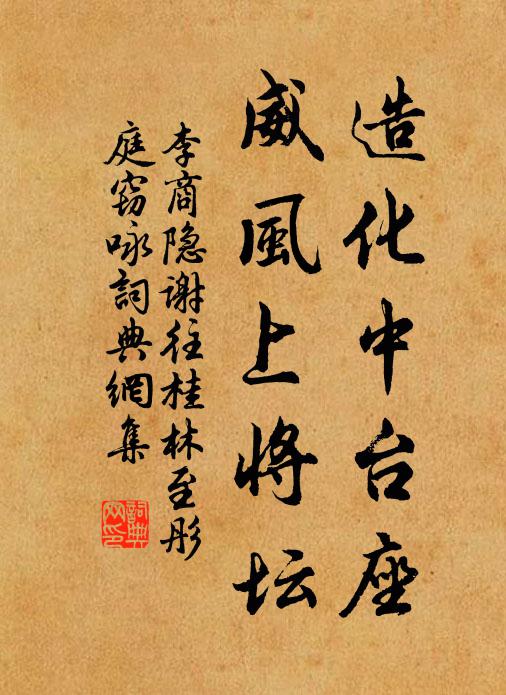 造化中台座
威風上将坛
李商隐謝往桂林至彤
庭窃咏詞典網集
詞典
网印